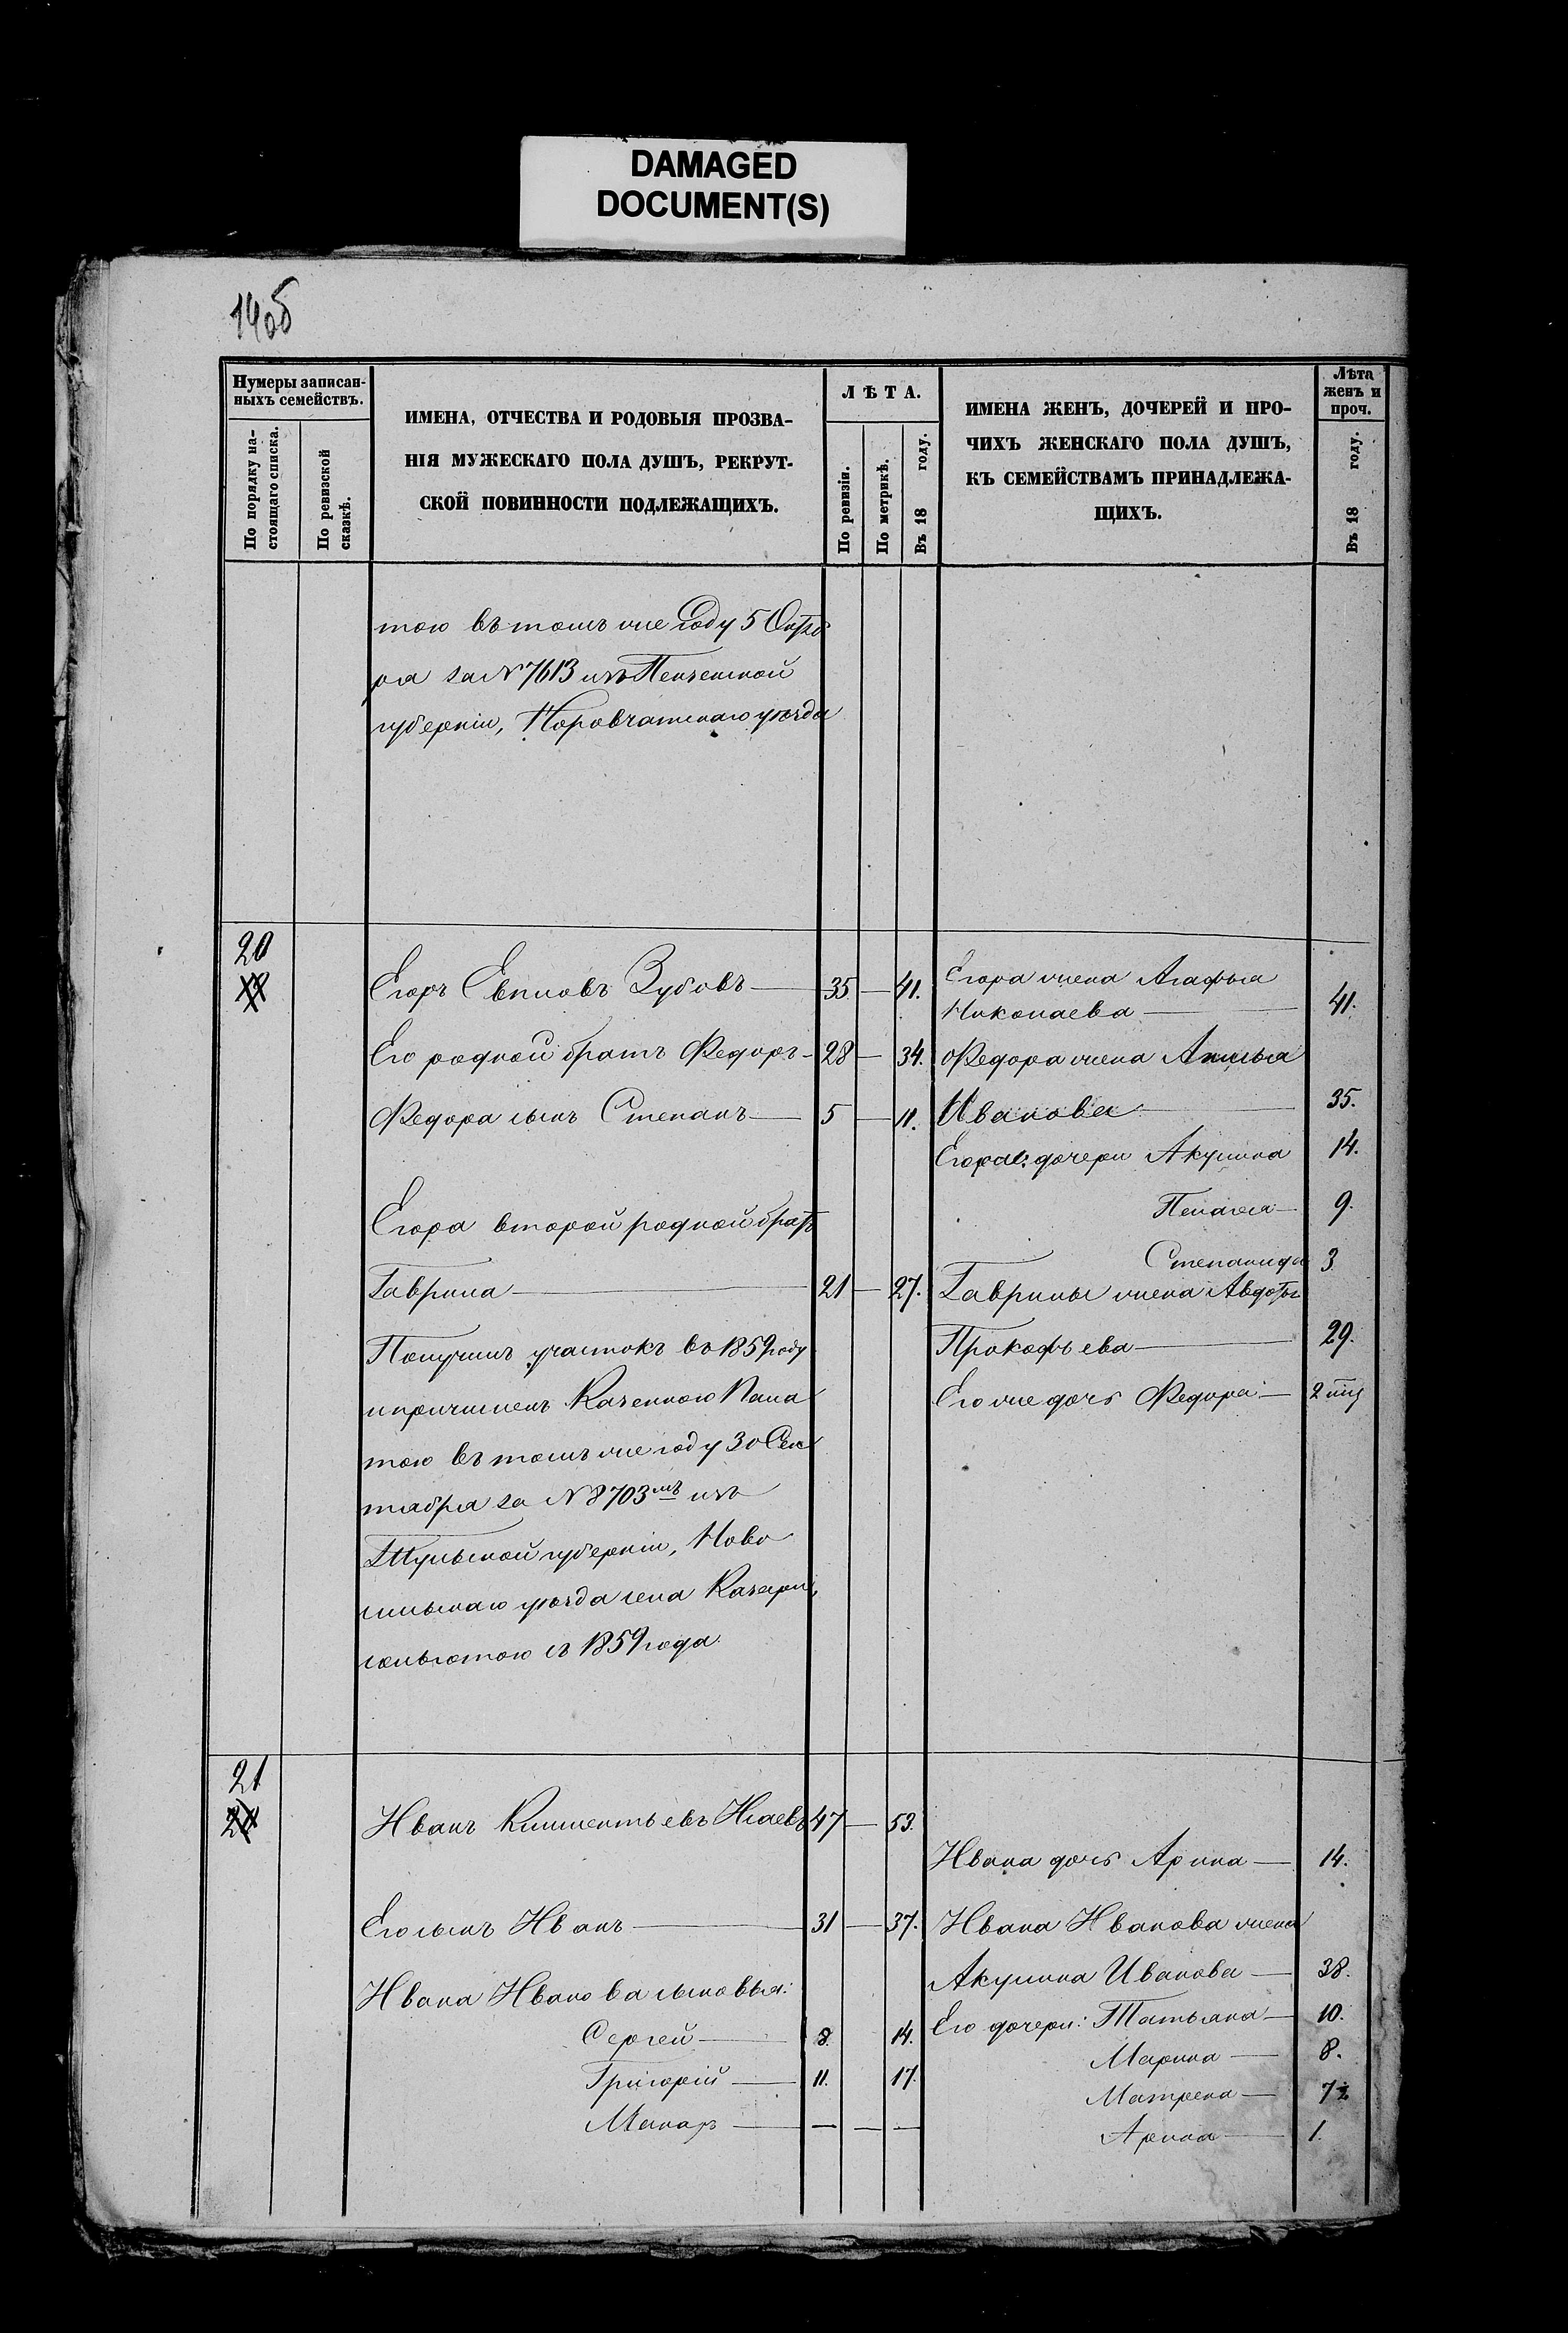 DAMAGED
DOCUMENT(S)
140б
Нумеры записан-
ныхъ семействъ.
По порядку на-
стоящаго списка.
По ревизской
сказкѣ.
ИМЕНА, ОТЧЕСТВА И РОДОВЫЯ ПРОЗВА-
НІЯ МУЖЕСКАГО ПОЛА ДУШЪ, РЕКРУТ-
СКОЙ ПОВИННОСТИ ПОДЛЕЖАЩИХЪ.
ЛѢТА.
По ревизіи.
По метрикѣ.
Въ 18 году.
ИМЕНА ЖЕНЪ, ДОЧЕРЕЙ И ПРО-
ЧИХЪ ЖЕНСКАГО ПОЛА ДУШЪ,
КЪ СЕМЕЙСТВАМЪ ПРИНАДЛЕЖА-
ЩИХЪ.
Лѣта
женъ и
проч.
Въ 18 году.
тою въ томъ же году 5 Октяб
ря за № 7613 изъ Пензенской
губерніи, Норовчатскаго уѣзда
20
Егоръ Зубовъ — 35 — 41.
Егора жена Агафья
Николаева — 41.
Его родной братъ Федоръ — 28 — 34.
Федора жена
Федора сынъ Степанъ — 5 — 11.
Иванова — 35.
Егора дочери Акулина 14.
Пелагея — 9.
Егора второй родной братъ
Степанида 3
Гаврила — 21 — 27.
Гаврилы жена Авдотья
Прокофьева — 29.
Его же дочь Федора — 2
Получилъ участокъ въ 1859 году
и причисленъ Казенною Пала
тою въ томъ же году 30 Сен
тября за № 8703мъ изъ
Тульской губерніи, Ново
сильскаго уѣзда села
льготою съ 1859 года.
21
Иванъ Климентьевъ 47 — 53.
Ивана дочь Арина — 14.
Его сынъ Иванъ — 31 — 37.
Ивана Иванова жена
Акулина Иванова — 38.
Ивана Иванова сыновья:
Его дочери: Татьяна — 10.
Сергей — 8. 14.
Марина — 8.
Григорій — 11. 17.
Матрена — 7
Макаръ — — — —
Арина — 1.